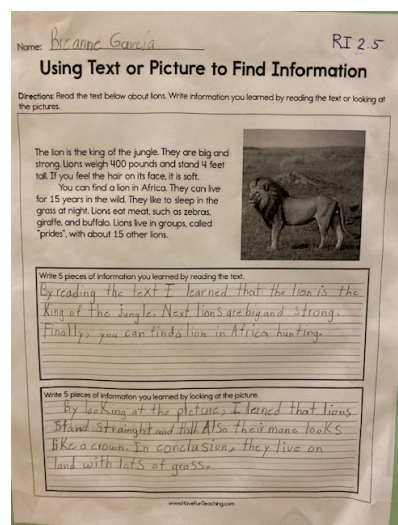 Name: Breanne Garcia
RI 2.5
Using Text or Picture to Find Information
Directions: Read the text below about lions. Write information you learned by reading the text or looking at
the pictures.
The lion is the king of the jungle. They are big and
strong. Lions weigh 400 pounds and stand 4 feet
tall. If you feel the hair on its face, it is soft.
You can find a lion in Africa. They can live
for 15 years in the wild. They like to sleep in the
grass at night. Lions eat meat, such as zebras,
giraffe, and buffalo. Lions live in groups, called
"prides", with about 15 other lions.
Write 5 pieces of information you learned by reading the text.
By reading the text I learned that the lion is the
King of the Jungle. Next lions are big and strong.
Finally, you can find a lion in Africa hunting.
Write 5 pieces of information you learned by looking at the picture.
By looking at the picture, I lerned that lions
Stand strainght and tall Also their mane looks
like a crown. In conclusion, they live on
land with lots of grass.
www.HaveFunTeaching.com